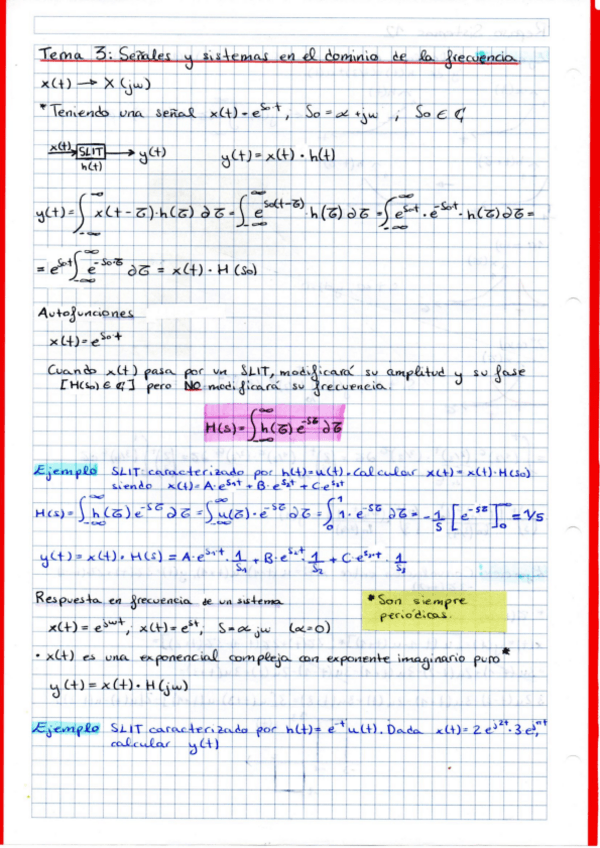 Tema 3: Señales y sistemas en el dominio de la frecuencia
x(t) → X(jω)
*Teniendo una señal x(t) = e^{s₀t}; S₀ = α + jω ; S₀ ∈ ₵
x(t) → SLIT → y(t)    y(t) = x(t) · h(t)
h(t)
y(t) = ∫_{-∞}^{∞} x(t-τ)·h(τ) ∂τ = ∫_{-∞}^{∞} e^{s₀(t-τ)} · h(τ) ∂τ = ∫_{-∞}^{∞} e^{s₀t} · e^{-s₀t} · h(τ) ∂τ =
= e^{s₀t} ∫_{-∞}^{∞} e^{-s₀τ} ∂τ = x(t) · H(s₀)
Autofunciones
x(t) = e^{s₀·t}
Cuando x(t) pasa por un SLIT, modificará su amplitud y su fase
[H(s₀) ∈ ₵] pero NO modificará su frecuencia.
H(s) = ∫_{-∞}^{∞} h(τ) e^{-sτ} ∂τ
Ejemplo SLIT caracterizado por h(t) = u(t). Calcular x(t) = x(t)·H(s₀)
siendo x(t) = A·e^{s₁t} + B·e^{s₂t} + C·e^{s₃t}
H(s) = ∫_{-∞}^{∞} h(τ) e^{-sτ} ∂τ = ∫_{-∞}^{∞} u(τ) · e^{-sτ} ∂τ = ∫ 1 · e^{-sτ} ∂τ = -1/s [e^{-sτ}]_0^∞ = 1/s
y(t) = x(t) · H(s) = A·e^{s₁t} · 1/s₁ + B·e^{s₂t} · 1/s₂ + C·e^{s₃t} · 1/s₃
Respuesta en frecuencia de un sistema
*Son siempre
periódicas.
x(t) = e^{jωt}; x(t) = e^{st}; S = α jω (α=0)
· x(t) es una exponencial compleja con exponente imaginario puro*
y(t) = x(t) · H(jω)
Ejemplo SLIT caracterizado por h(t) = e^{-t} u(t). Dada x(t) = 2 e^{j2t} · 3 e^{jπt},
calcular y(t)